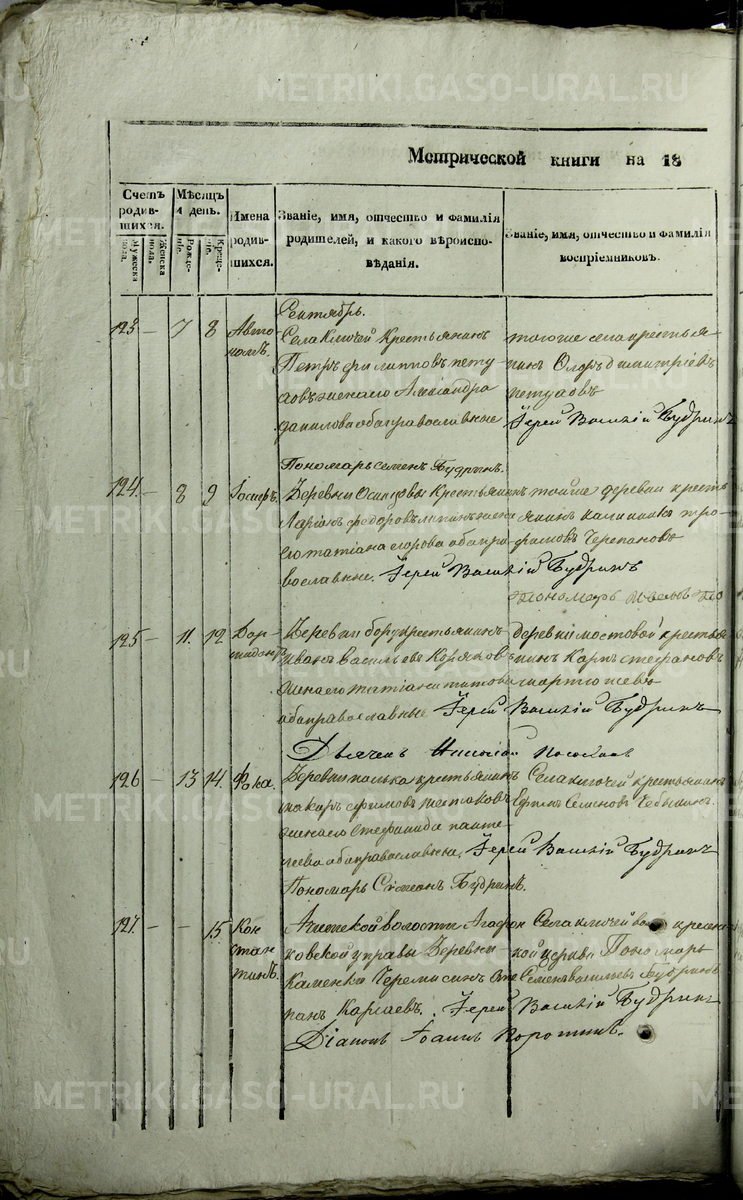 METRIKI.GASO-URAL.RU
Метрической книги на 18
Счетъ родив-шихся.
Мужеска пола.
Женска пола.
Мѣсяцъ и день.
Рожде-ніе.
Креще-ніе.
Имена родив-шихся.
Званіе, имя, отчество и фамилія родителей, и какого вѣроиспо-вѣданія.
Званіе, имя, отчество и фамилія воспріемниковъ.
Сентябрь.
123 — 7 8 Авто-номъ.
Села Ключей Крестьянинъ
Петръ Филипповъ
жена его Александра
Данилова оба православные
тогоже села крестья-
нинъ Димитріевъ
Іерей Василій Будринъ
Пономарь Семенъ Будринъ.
124. — 8 9 Іосифъ.
Деревни Осиповы Крестьянинъ
Ларіонъ Федоровъ жена
его Татіана Егорова оба пра-
вославные. Іерей Василій Будринъ
тойже деревни кресть-
янинъ Калинникъ Тро-
фимовъ Черепановъ
Пономарь
125 — 11. 12
Деревни Бору крестьянинъ
Иванъ Васильевъ Коряковъ
жена его Татіана Титова
оба православные Іерей Василій Будринъ
деревни Мостовой крестья-
нинъ Карпъ Стефановъ
Мартюшевъ
Дьячекъ
126 — 13 14. Фока.
Деревни крестьянинъ
Макаръ
жена его Стефанида Панте-
леева оба православные, Іерей Василій Будринъ
Села Ключей крестьянинъ
Ефимъ Семеновъ Чебыкинъ.
Пономарь Симеонъ Будринъ.
127. — — 15. Кон-стан-тинъ.
Ачитской волости Агафон-
ковской управы Деревни
Каменки Черемисинъ Сте-
панъ Карлаевъ. Іерей Василій Будринъ
Села Ключей
кой церкви Пономарь
Семенъ Васильевъ Будринъ
Діаконъ Іоаннъ Коротинъ.